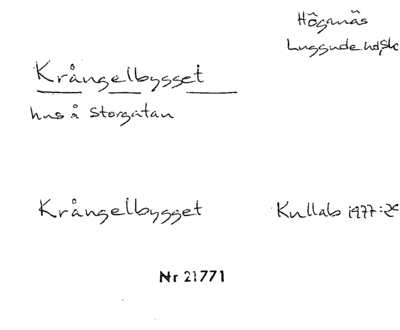 Höganäs
Luggude hd, Sk
Krångelbygget
hus å Storgatan
Krångelbygget
Kullab 1977:
Nr 21771